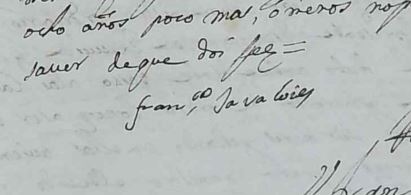 ocho años poco mas, o menos no
saver de que doi fee =
fran.co Javaloies